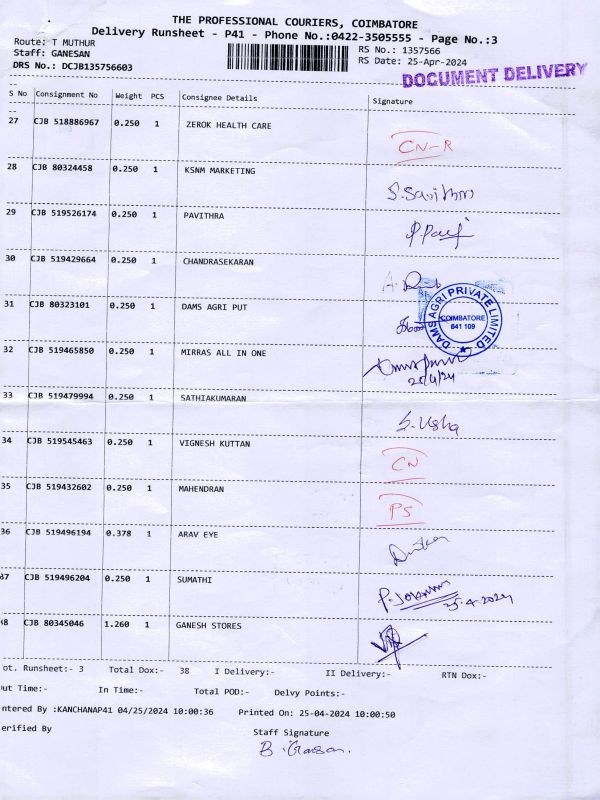 THE PROFESSIONAL COURIERS, COIMBATORE
Delivery Runsheet - P41 - Phone No.:0422-3505555 - Page No.:3
Route: T MUTHUR
RS No.: 1357566
Staff: GANESAN
RS Date: 25-Apr-2024
DRS No.: DCJB135756603
DOCUMENT DELIVERY
S No Consignment No Weight PCS Consignee Details Signature
27 CJB 518886967 0.250 1 ZEROK HEALTH CARE
CN-R
28 CJB 80324458 0.250 1 KSNM MARKETING
S.Savithri
29 CJB 519526174 0.250 1 PAVITHRA
30 CJB 519429664 0.250 1 CHANDRASEKARAN
31 CJB 80323101 0.250 1 DAMS AGRI PUT
DAMS AGRI PRIVATE LIMITED
COIMBATORE
641 109
32 CJB 519465850 0.250 1 MIRRAS ALL IN ONE
25/4/24
33 CJB 519479994 0.250 1 SATHIAKUMARAN
S. Usha
34 CJB 519545463 0.250 1 VIGNESH KUTTAN
CN
35 CJB 519432602 0.250 1 MAHENDRAN
PS
36 CJB 519496194 0.378 1 ARAV EYE
37 CJB 519496204 0.250 1 SUMATHI
25-4-2024
38 CJB 80345046 1.260 1 GANESH STORES
ot. Runsheet:- 3 Total Dox:- 38 I Delivery:- II Delivery:- RTN Dox:-
ut Time:- In Time:- Total POD:- Delvy Points:-
ntered By :KANCHANAP41 04/25/2024 10:00:36 Printed On: 25-04-2024 10:00:50
erified By Staff Signature